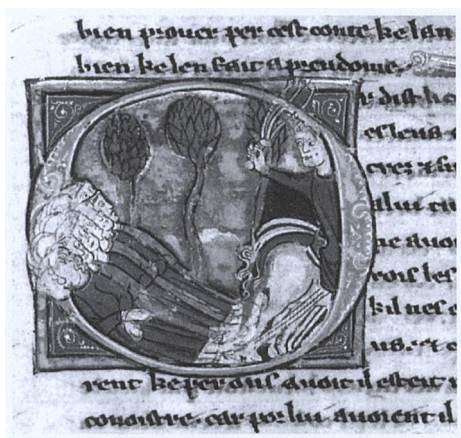 bien prouer per cest conte ke lan
bien ke len fait a preudome.
r dist
es leus
alui
ne auoi
rois les
kil ues
us. et c
rent ke per aus auoit il esteit
conoistre. car por lui auoient il